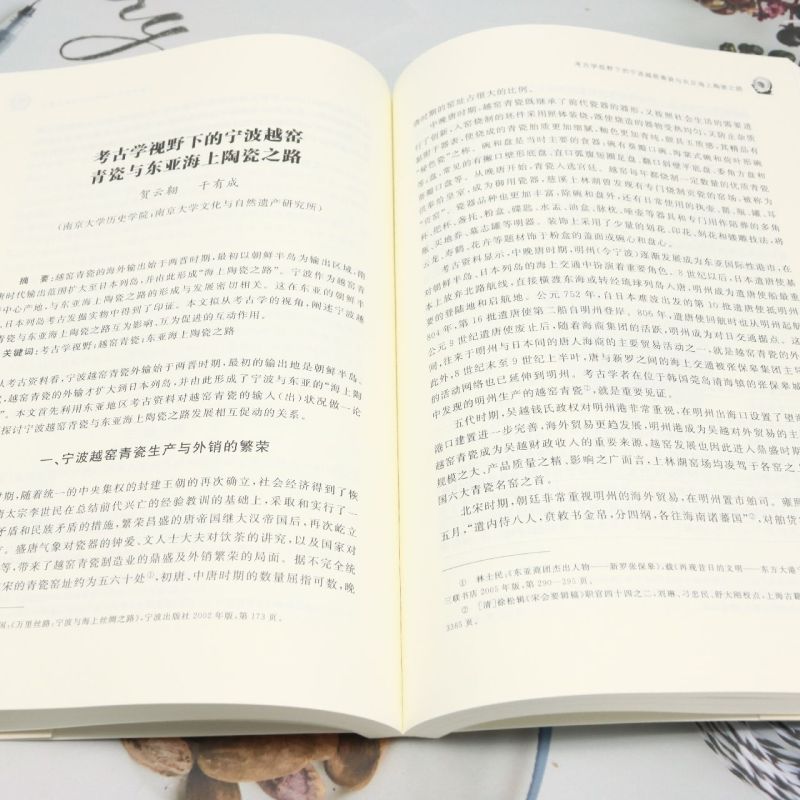 考古学视野下的宁波越窑
青瓷与东亚海上陶瓷之路
贺云翱 干有成
(南京大学历史学院,南京大学文化与自然遗产研究所)
摘 要:越窑青瓷的海外输出始于两晋时期,最初以朝鲜半岛为输出区域,隋
唐时代输出范围扩大至日本列岛,并由此形成“海上陶瓷之路”。宁波作为越窑青
中心产地,与东亚海上陶瓷之路的形成与发展密切相关。这在东亚的朝鲜半
日本列岛考古发掘实物中得到了印证。本文拟从考古学的视角,阐述宁波越
与东亚海上陶瓷之路互为影响、互为促进的互动作用。
关键词:考古学视野;越窑青瓷;东亚海上陶瓷之路
从考古资料看,宁波越窑青瓷外输始于两晋时期,最初的输出地是朝鲜半岛。
越窑青瓷的外输才扩大到日本列岛,并由此形成了宁波与东亚的“海上陶
”。本文首先利用东亚地区考古资料对越窑青瓷的输入(出)状况做一论
探讨宁波越窑青瓷与东亚海上陶瓷之路发展相互促动的关系。
一、宁波越窑青瓷生产与外销的繁荣
时期,随着统一的中央集权的封建王朝的再次确立,社会经济得到了恢
唐太宗李世民在总结前代兴亡的经验教训的基础上,采取和实行了一
矛盾和民族矛盾的措施,繁荣昌盛的唐帝国继大汉帝国后,再次屹立
。盛唐气象对瓷器的钟爱、文人士大夫对饮茶的讲究,以及国家对
等,带来了越窑青瓷制造业的鼎盛及外销繁荣的局面。据不完全统
宋的青瓷窑址约为五六十处①,初唐、中唐时期的数量屈指可数,晚
《万里丝路:宁波与海上丝绸之路》,宁波出版社 2002 年版,第 173 页。
考古学视野下的宁波越窑青瓷与东亚海上陶瓷之路
唐时期的窑址占很大的比例。
中晚唐时期,越窑青瓷既继承了前代瓷器的器形,又按照社会生活的需要进
行了创新,入窑烧制的坯件采用匣钵装烧,既使烧造的器物受热均匀,又防止杂质
黏附于器表,使烧成的青瓷胎质更加细腻,釉色更加青纯,颇具玉质感,其精品有
“秘色瓷”之称。碗和盘是当时主要的食器,碗有葵瓣口碗、海棠式碗和荷叶形碗
等,常见的有撇口壁形底盘、直口弧腹短圈足盘、翻口划壁平底盘、委角方盘和
瓣口盘等。从晚唐开始,青瓷入选宫廷。越窑每年都烧制一定数量的优质青瓷
供奉给皇室,成为御用瓷器,慈溪上林湖曾发现有专门烧制贡瓷的窑场,被称为
“贡窑”。瓷器品种也更加丰富,除碗和盘外,还有日常使用的执壶、罂、瓶、罐、耳
杯、把杯、盏托、粉盒、碟匙、水盂、油盒、脉枕、唾壶等器具和专门用作陪葬的多角
瓶、买地券、墓志罐等明器。装饰上采用了少量的划花、印花、刻花和镂雕技法,将
云龙、寿鹤、花卉等题材饰于粉盒的盖面或碗心和盘心。
考古资料显示,中晚唐时期,明州(今宁波)逐渐发展成为东亚国际性港口,在
对朝鲜半岛、日本列岛的海上交通中扮演着重要角色。8 世纪以后,日本遣唐使基
本上放弃北路航线,直接横渡东海或转经琉球列岛入唐,明州成为遣唐使船最重
要的登陆地和启航地。公元 752 年,自日本难波出发的第 10 批遣唐使抵明州
804 年,第 16 批遣唐使第二船自明州登岸。806 年,遣唐使回航时也从明州起航
公元 9 世纪遣唐使废止后,随着海商集团的活跃,明州成为对日交通掘点。这
间,往来于明州与日本间的唐人海商的主要贸易活动之一,就是越窑青瓷的外
此外,8 世纪末至 9 世纪上半叶,唐与新罗之间的海上交通被张保皋集团主导
的活动网络也已延伸到明州。考古学者在位于韩国莞岛清海镇的张保皋城
中发现的明州生产的越窑青瓷①,就是重要见证。
五代时期,吴越钱氏政权对明州港非常重视,在明州出海口设置了望海
港口建置进一步完善,海外贸易更趋发展,明州港成为吴越对外贸易的主
越窑青瓷成为吴越财政收入的重要来源,越窑发展也因此进入鼎盛时期
规模之大、产品质量之精、影响之广而言,上林湖窑场均凌驾于各窑之
国六大青瓷名窑之首。
北宋时期,朝廷非常重视明州的海外贸易,在明州置市舶司。雍熙
五月,“遣内侍八人,赍敕书金帛,分四纲,各往海南诸藩国”②,对舶货
① 林士民:《东亚商团杰出人物——新罗张保皋》,载《再现昔日的文明——东方大港宁
三联书店 2005 年版,第 290—295 页。
② [清]徐松辑《宋会要辑稿》职官四十四之二,刘琳、刁忠民、舒大刚校点,上海古籍
3365 页。